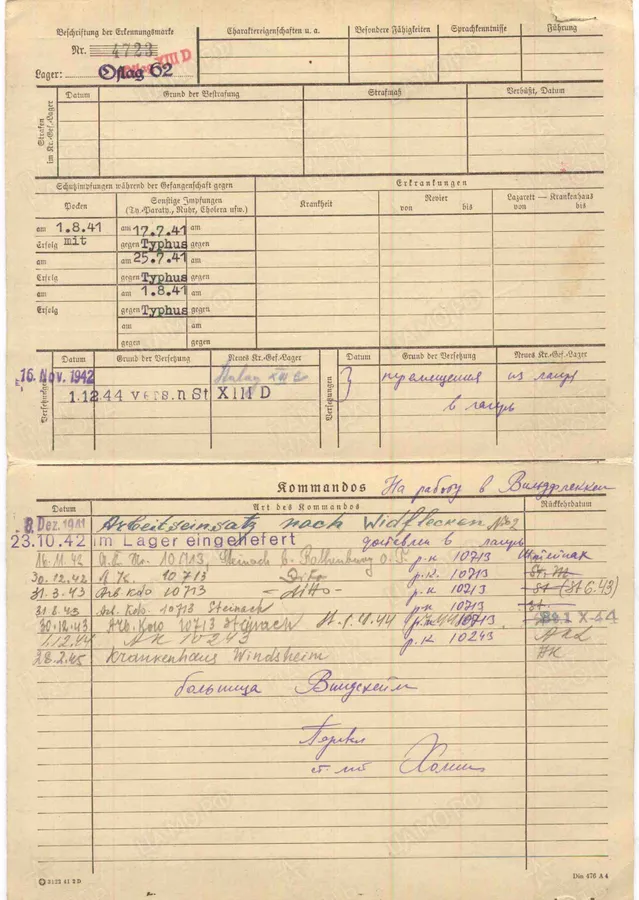 Beschriftung der Erkennungsmarke
Nr. 4723
XIII D
Lager: Oflag 62
Charaktereigenschaften u. a.
Besondere Fähigkeiten
Sprachkenntnisse
Führung
Strafen im Kr.-Gef.-Lager
Datum
Grund der Bestrafung
Strafmaß
Verbüßt, Datum
Schutzimpfungen während der Gefangenschaft gegen
Erkrankungen
Pocken
Sonstige Impfungen
(Ty.-Paraty., Ruhr, Cholera usw.)
Krankheit
Revier
von bis
Lazarett — Krankenhaus
von bis
am 1.8.41 am 17.7.41 am
Erfolg mit gegen Typhus gegen
am am 25.7.41 am
Erfolg gegen Typhus gegen
am am 1.8.41 am
Erfolg gegen Typhus gegen
am am
gegen gegen
Versetzungen
Datum
Grund der Versetzung
Neues Kr.-Gef.-Lager
Versetzungen
Datum
Grund der Versetzung
Neues Kr.-Gef.-Lager
16. Nov. 1942 Stalag XIII
1.12.44 vers. n St XIII D
перемещения из лагеря
в лагерь
Kommandos На работу в Вильдфлеккен
Datum
Art des Kommandos
Rückkehrdatum
8. Dez. 1941 Arbeitseinsatz nach Widflecken No 2
23.10.42 im Lager eingeliefert доставлен в лагерь
16.11.42 10713, Steinach b. Rothenburg o. T. р.к 10713 Штейнах
30.12.42 A. K. 10713 Dito р.к. 10713
31.3.43 Arb kdo 10713 — ditto — р.к 10713 St (St 6.43)
31.8.43 Arb. Kdo. 10713 Steinach р.к 10713 St.
30.12.43 Arb. Kdo 10713 Steinach 10713 X-44
1.12.44 AK 10243 р.к 10243
28.2.45 Krankenhaus Windsheim
больница Виндсхейм
Перевел
Din 476 A 4